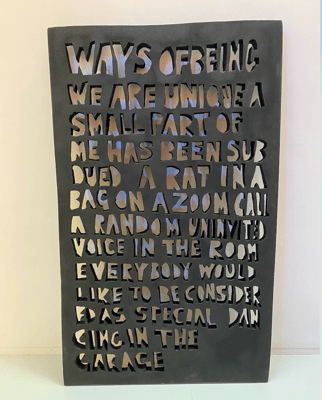 WAYS OF BEING
WE ARE UNIQUE A
SMALL PART OF
ME HAS BEEN SUB
DUED A RAT IN A
BAG ON A ZOOM CALL
A RANDOM UNINVITED
VOICE IN THE ROOM
EVERYBODY WOULD
LIKE TO BE CONSIDER
ED AS SPECIAL DAN
CING IN THE
GARAGE